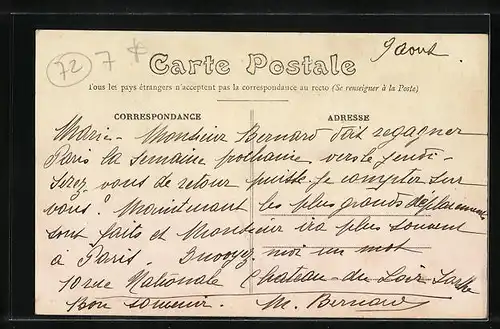 72 7
9 Aout
Carte Postale
Tous les pays étrangers n'acceptent pas la correspondance au recto (Se renseigner à la Poste)
CORRESPONDANCE ADRESSE
Marie - Monsieur Bernard doit regagner
Paris la semaine prochaine vers le jeudi -
Serez vous de retour puisse je compter sur
vous? Maintenant les plus grands déplacements
sont faits et Monsieur ira plus souvent
à Paris. Envoyez moi un mot
10 rue Nationale Chateau-du-Loir Sarthe
Bon souvenir. M. Bernard